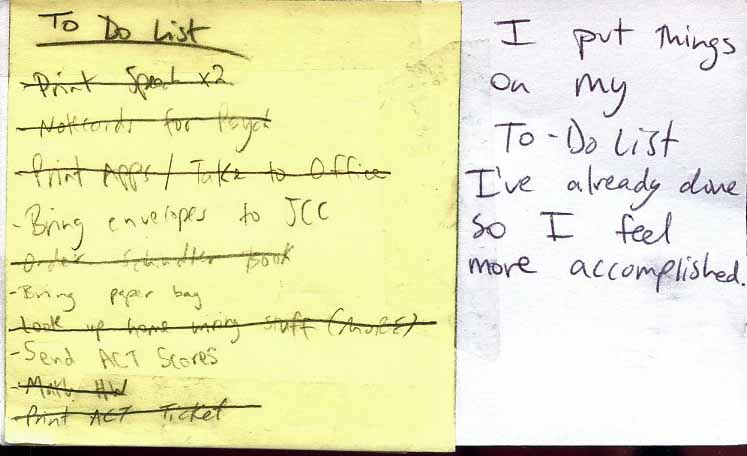 To Do List
- Print Speech x2
- Notecards for Psych
- Print Apps / Take to Office
- Bring envelopes to JCC
- Order Schindler Book
- Bring paper bag
- Look up home wiring stuff (MORE)
- Send ACT Scores
- Math HW
- Print ACT Ticket
I put things
on my
To-Do List
I've already done
so I feel
more accomplished.